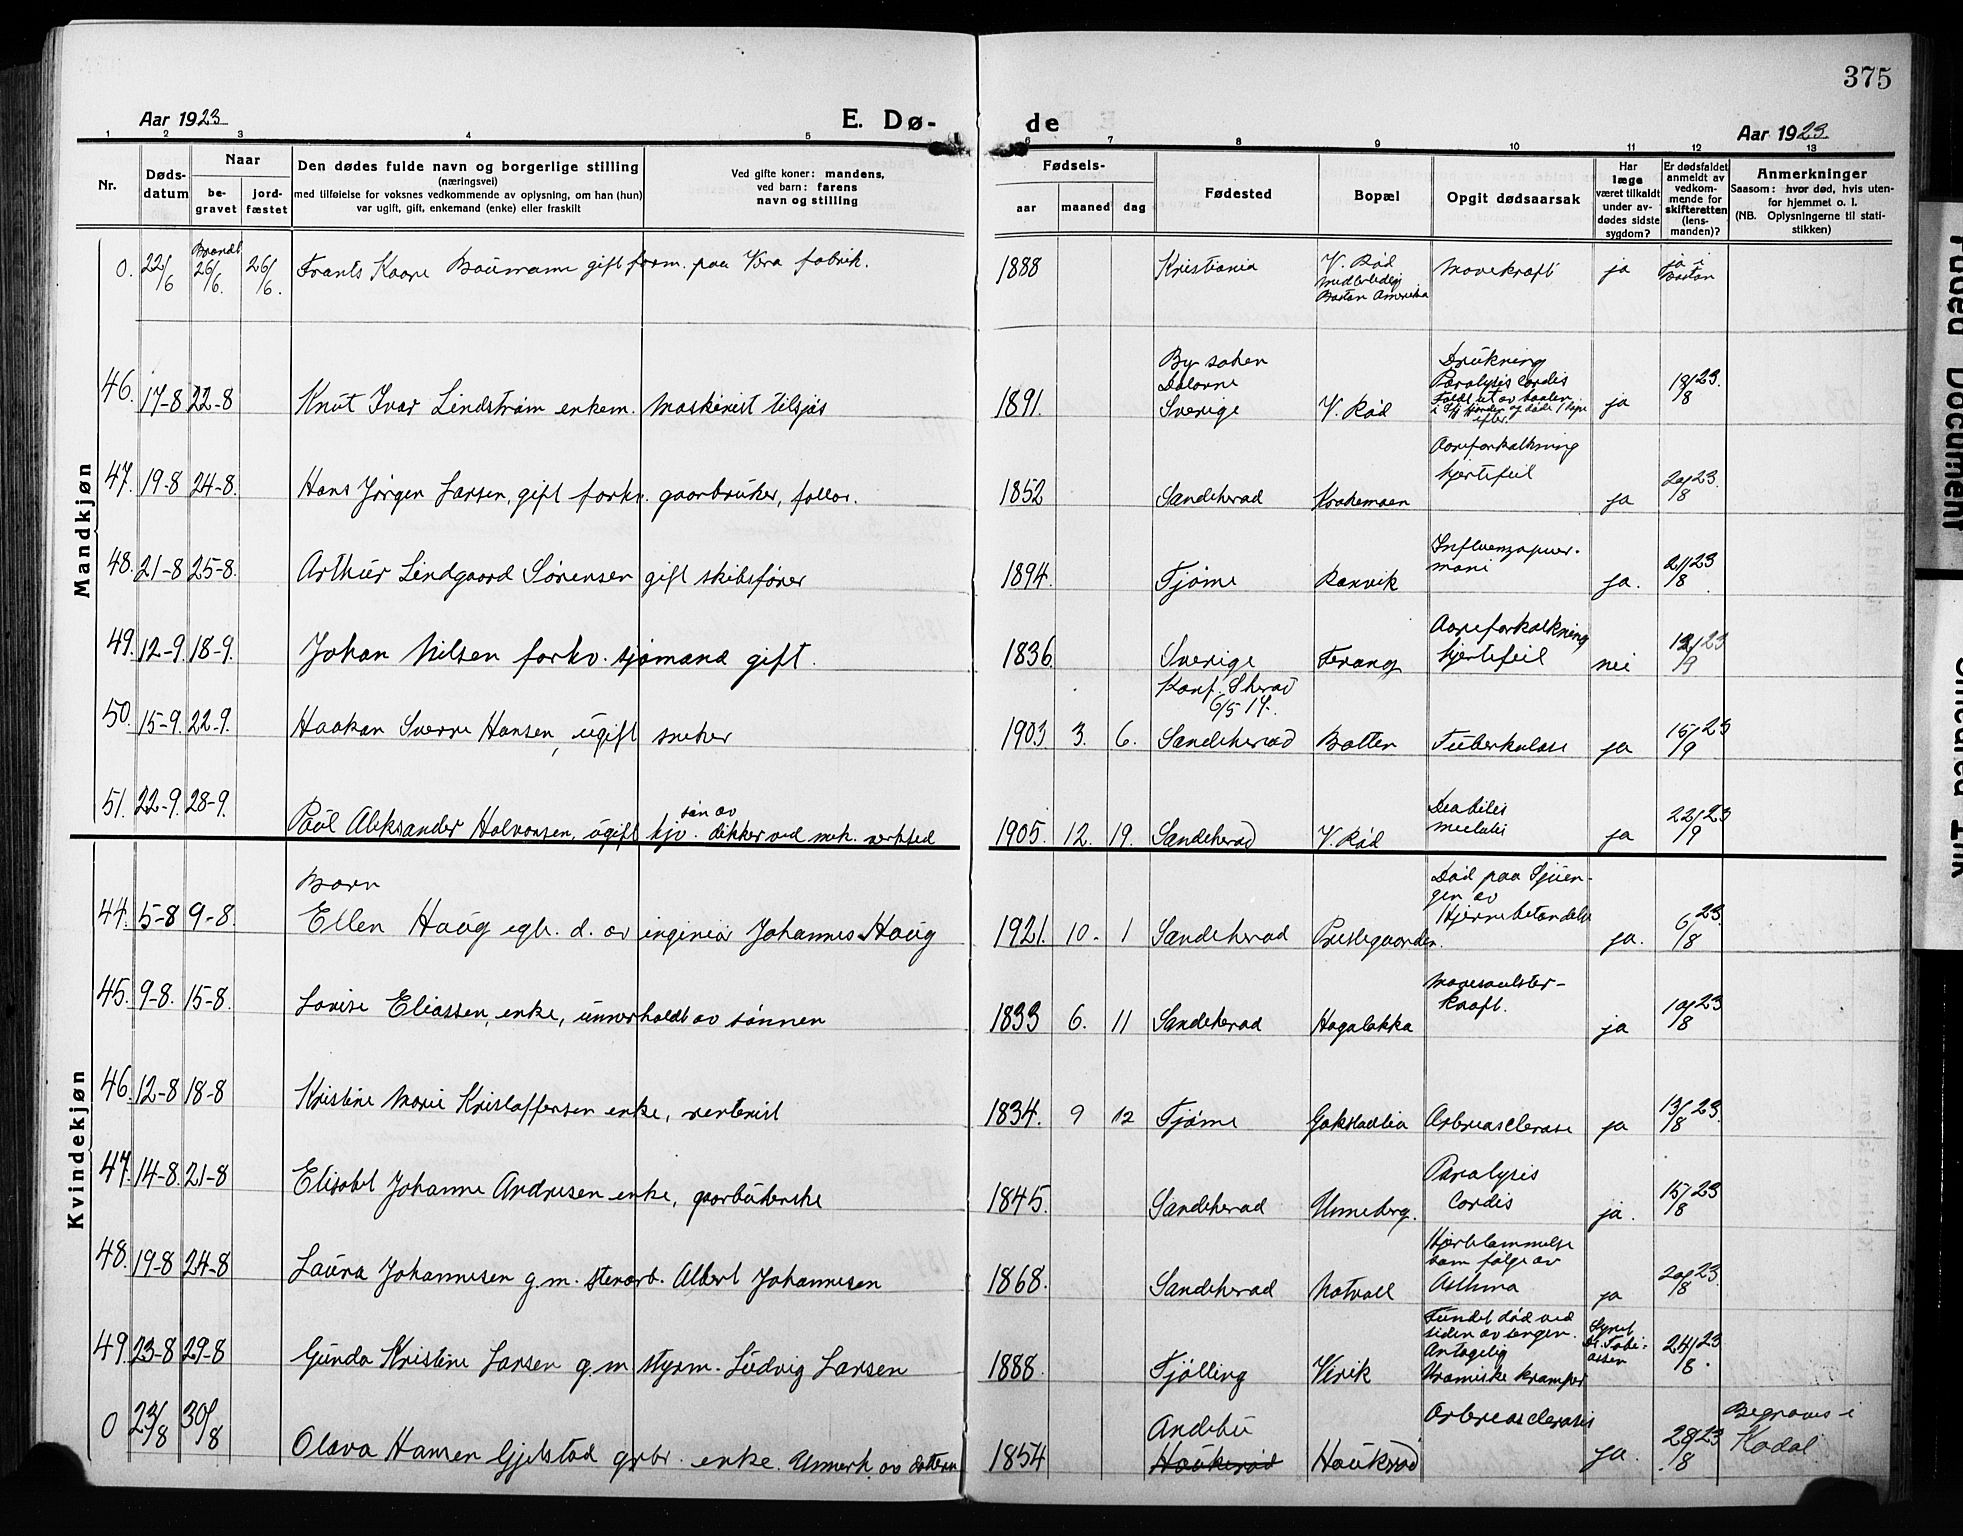 375
Aar 1923
E. Dø-
de
Aar 1923
1 2 3 4 5 6 7 8 9 10 11 12 13
Nr.
Døds-
datum
Naar
be-
gravet
jord-
fæstet
Den dødes fulde navn og borgerlige stilling
(næringsvei)
med tilføielse for voksnes vedkommende av oplysning, om han (hun)
var ugift, gift, enkemand (enke) eller fraskilt
Ved gifte koner: mandens,
ved barn: farens
navn og stilling
Fødsels-
aar
maaned
dag
Fødested
Bopæl
Opgit dødsaarsak
Har
læge
været tilkaldt
under av-
dødes sidste
sygdom?
Er dødsfaldet
anmeldt av
vedkom-
mende for
skifteretten
(lens-
manden)?
Anmerkninger
Saasom: hvor død, hvis uten-
for hjemmet o. l.
(NB. Oplysningerne til stati-
stikken)
Mandkjøn
0. 22/6 Brændt 26/6. 26/6. Frants Kaare gift form. paa Vera fabrik. 1888 Kristiania V. Rød
Midlertidig
Boston Amerika
Mavekræft ja ja i
Boston
46. 17-8 22-8 Knut Ivar Lindstrøm enkem. maskinist tilsjøs 1891. By soken
Dalarne
Sverige V. Rød
Drukning
Paralysis cordis
ja 18/8 23.
47. 19-8 24-8. Hans Jørgen Larsen, gift forhv. gaardbruker, 1852 Sandeherad
Aareforkalkning
hjertefeil ja 20/8 23.
48. 21-8 25-8. Arthur Lindgaard Sørensen gift skibsfører 1894. Tjøme Ranvik
Influenzapneu-
moni ja. 21/8 23
49. 12-9. 18-9. Johan Nilsen forhv. sjømand gift. 1836. Sverige
Aareforkalkning
hjertefeil nei 13/9 23
50. 15-9. 22-9. Haakon Sverre Hansen, ugift snekker 1903 3. 6. Konf. Sherad
6/5 17.
Sandeherad Tuberkulose ja 15/9 23
51. 22-9. 28-9. Paul Aleksander Halvorsen, ugift søn av
kjv. dikker ved mek. verksted 1905. 12. 19. Sandeherad V. Rød
Diabetes
ja 22/9 23
Kvindekjøn
44. 5-8 9-8. Barn
Ellen Haug egb. d. av ingeniør Johannes Haug 1921. 10. 1 Sandeherad Prestegaarden.
Død paa Tjuen-
gen av
Hjernebetændelse ja. 6/8 23.
45. 9-8. 15-8. Lovise Eliassen, enke, underholdt av sønnen 1833 6. 11 Sandeherad Hagaløkka
kræft. ja 10/8 23
46. 12-8 18-8 Kristine Marie Kristoffersen enke, rentenist 1834. 9 12 Tjøme Gokstadlia ja 13/8 23.
47. 14-8. 21-8 Elisabet Johanne Andresen enke, gaardbukerske 1845. Sandeherad Unneberg.
Paralysis
Cordis ja. 15/8 23
48. 19-8 24-8 Laura Johannesen g. m. stenarb. Albert Johannesen 1868. Sandeherad
Hjertelammelse
som følge av
Asthma ja 20/8 23.
49. 23-8 29-8 Gunda Kristine Larsen g. m. styrm. Ludvig Larsen 1888. Tjølling Virik
Fundet død ved
siden av sengen.
Antagelig
Uræmiske kramper Synet
Dr. Tobi-
assen 24/8 23.
0 23/8 30/8 Olava Hansen Gjelstad grbr. enke. Underh. av datteren 1854 Andebu
Haukerød Haukerød ja. 28/8 23 Begraves i
Kodal
Faded Document
Smeared Ink